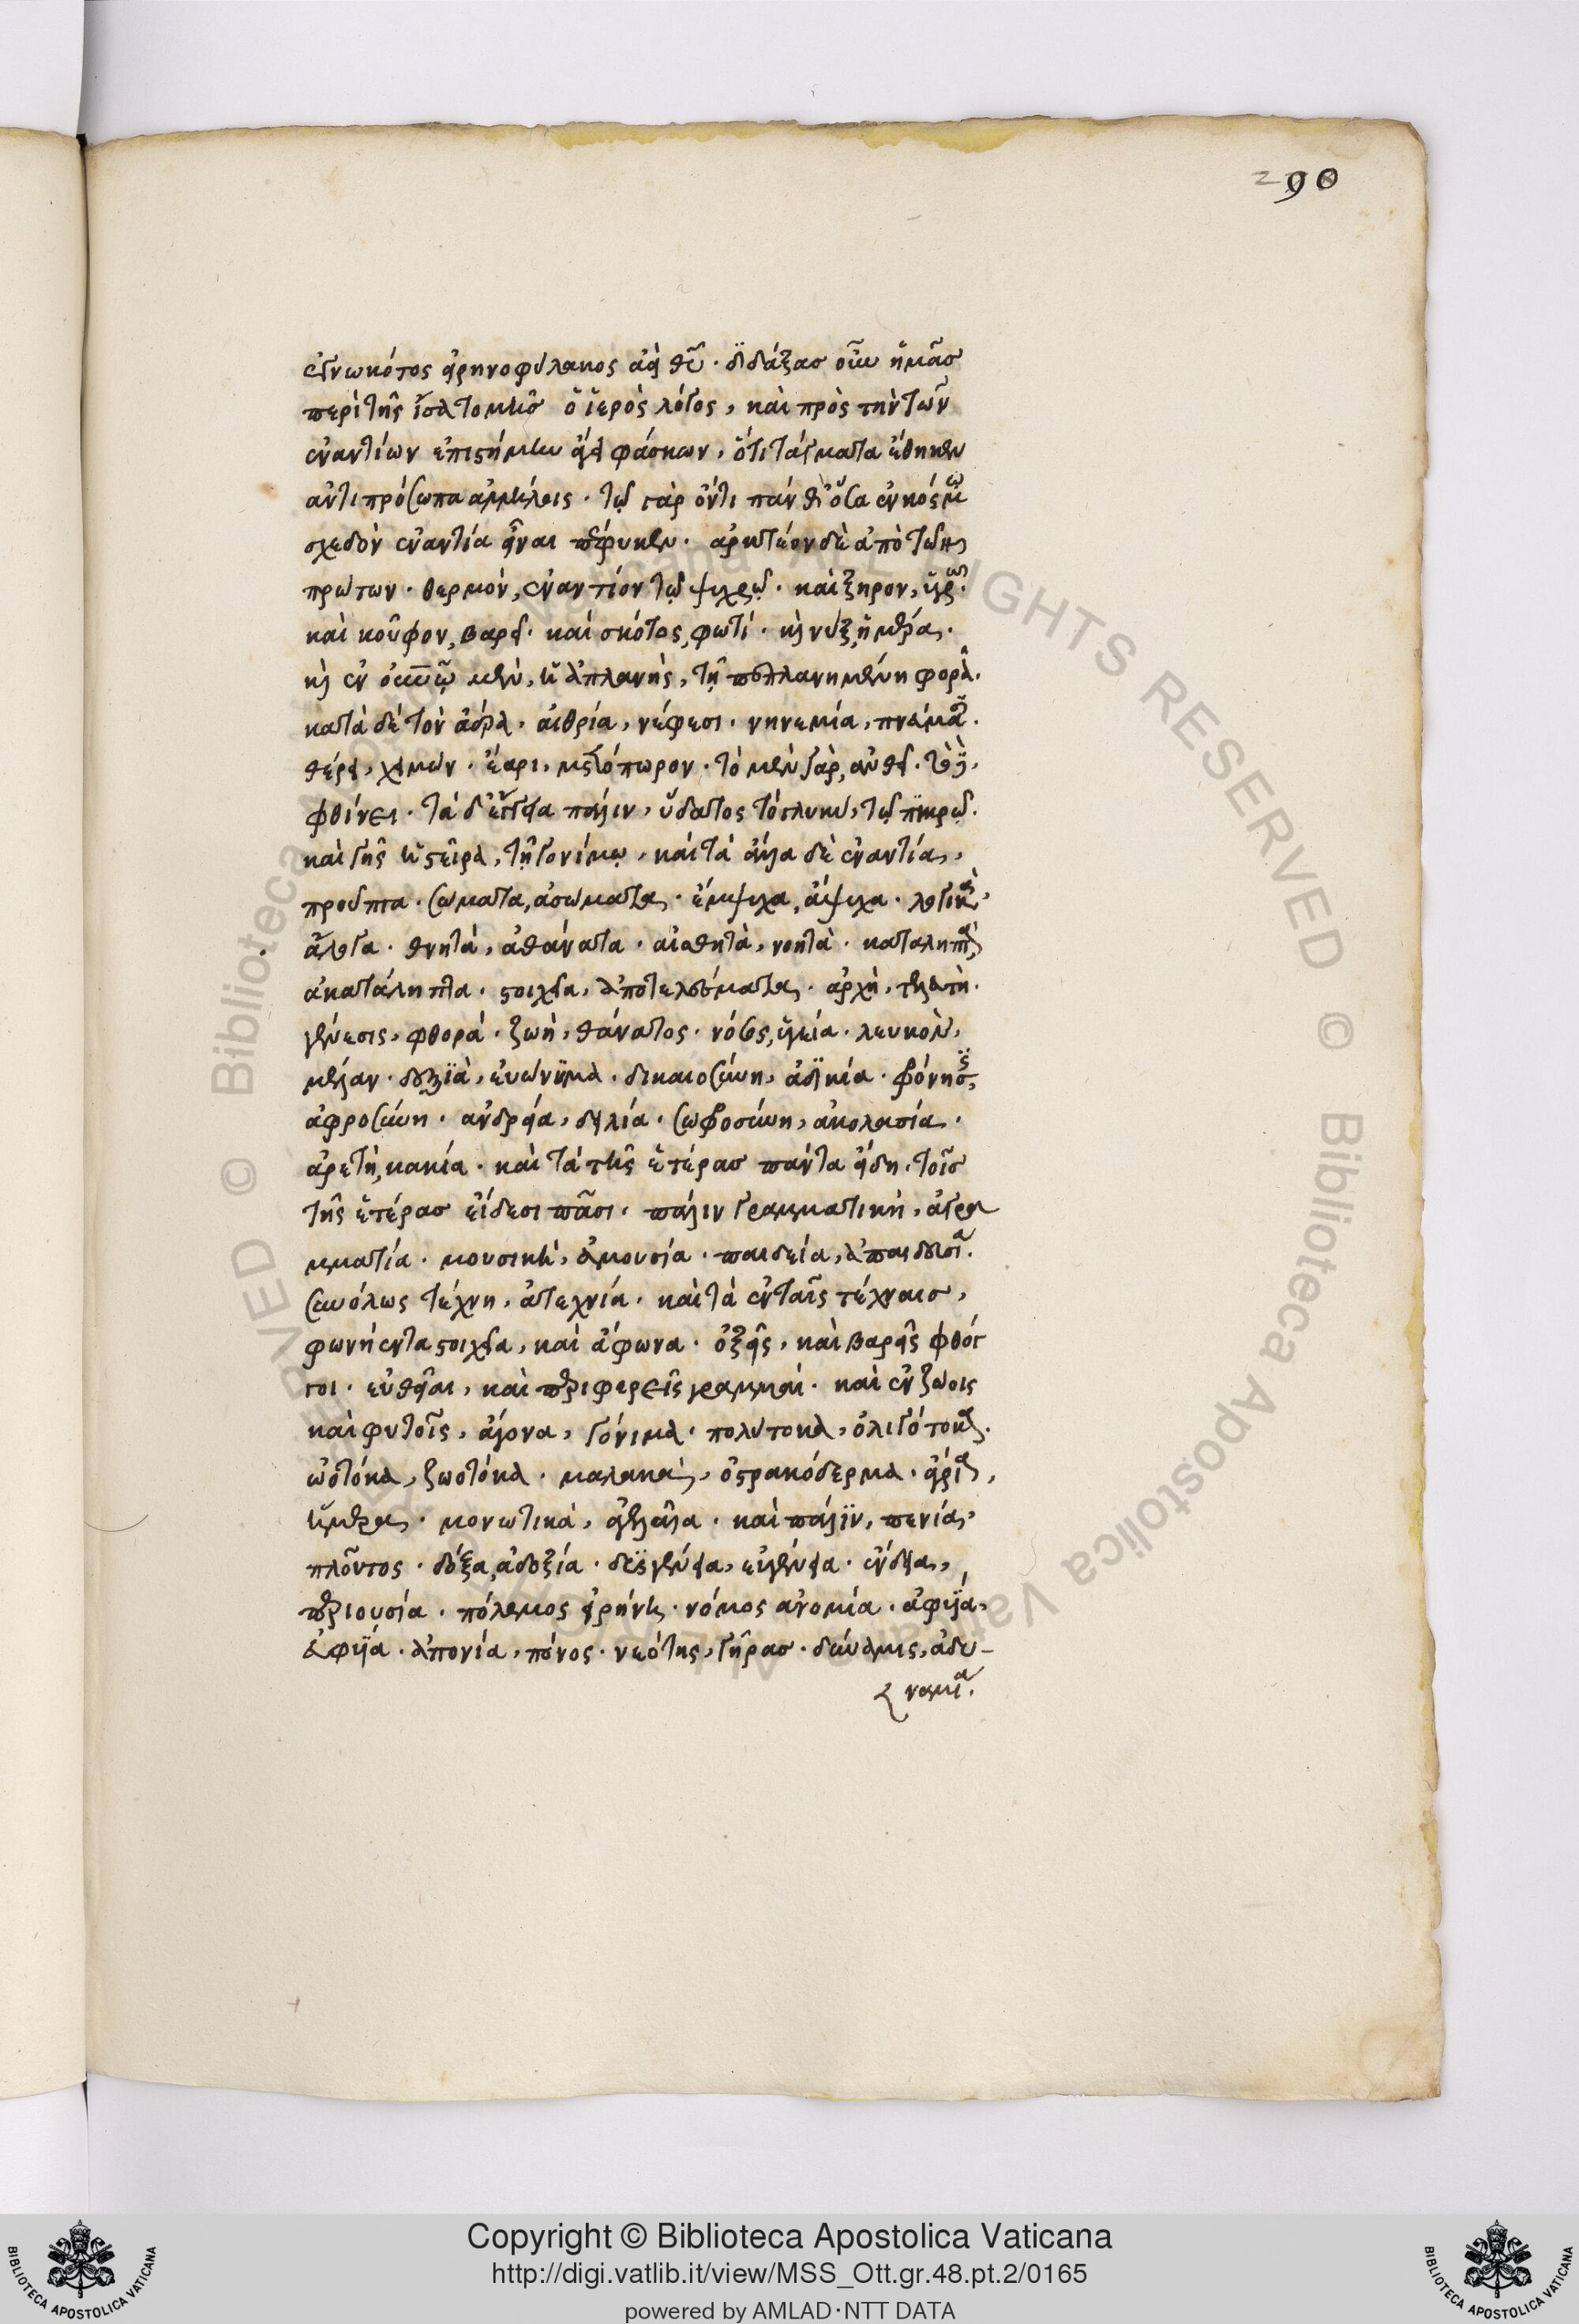 290
ἐγνωκότος εἰρηνοφύλακος ἀεὶ θεοῦ· διδάξας οὖν ἡμᾶς
περὶ τῆς εἰς ἴσα τομῆς ὁ ἱερὸς λόγος, καὶ πρὸς τὴν τῶν
ἐναντίων ἐπιστήμην ἄγει φάσκων, ὅτι τὰ τμήματα ἔθηκεν
ἀντιπρόσωπα ἀλλήλοις· τῷ γὰρ ὄντι πάνθ' ὅσα ἐν κόσμῳ
σχεδὸν ἐναντία εἶναι πέφυκεν· ἀρκτέον δὲ ἀπὸ τῶν
πρώτων· θερμὸν, ἐναντίον τῷ ψυχρῷ· καὶ ξηρον, ὑγρῷ·
καὶ κοῦφον, βαρεῖ· καὶ σκότος, φωτί· καὶ νύξ, ἡμέρα·
καὶ ἐν οὐρανῷ μὲν, ἡ ἀπλανὴς, τῇ πεπλανημένη φορᾷ·
κατὰ δὲ τὸν ἀέρα, αἰθρία, νέφεσι· νηνεμία, πνεύμασι·
θέρει, χειμών· ἔαρι, μετόπωρον· τὸ μὲν γὰρ, ἀνθεῖ· τὸ δὲ,
φθίνει· τὰ δ' ἔγγεια πάλιν, ὕδατος τὸ γλυκὺ, τῷ πικρῷ·
καὶ γῆς ἡ στεῖρα, τῇ γονίμῳ, καὶ τὰ ἄλλα δὲ ἐναντία,
προὖπτα· σώματα, ἀσώματα· ἔμψυχα, ἄψυχα· λογικὰ,
ἄλογα· θνητὰ, ἀθάνατα· αἰσθητὰ, νοητὰ· καταληπτὰ,
ἀκατάληπτα· στοιχεῖα, ἀποτελέσματα· ἀρχὴ, τελευτὴ·
γένεσις, φθορά· ζωὴ, θάνατος· νόσος, ὑγεία· λευκὸν,
μέλαν· δεξιὰ, εὐώνυμα· δικαιοσύνη, ἀδικία· φρόνησις,
ἀφροσύνη· ἀνδρεία, δειλία· σωφροσύνη, ἀκολασία·
ἀρετὴ, κακία· καὶ τὰ τῆς ἑτέρας πάντα εἴδη, τοῖς
τῆς ἑτέρας εἴδεσι πᾶσι· πάλιν γραμματικὴ, ἀγρα
μματία· μουσικὴ, ἀμουσία· παιδεία, ἀπαιδευσία·
συνόλως τέχνη, ἀτεχνία· καὶ τὰ ἐν ταῖς τέχναις,
φωνήεντα στοιχεῖα, καὶ ἄφωνα· ὀξεῖς, καὶ βαρεῖς φθόγ
γοι· εὐθεῖαι, καὶ περιφερεῖς γραμμαί· καὶ ἐν ζώοις
καὶ φυτοῖς, ἄγονα, γόνιμα· πολύτοκα, ὀλιγότοκα·
ὠοτόκα, ζωοτόκα· μαλακὰ, ὀστρακόδερμα· ἄγρια,
ἥμερα· μονωτικὰ, ἀγελαῖα· καὶ πάλιν, πενία,
πλοῦτος· δόξα, ἀδοξία· δυσγένεια, εὐγένεια· ἔνδεια,
περιουσία· πόλεμος εἰρήνη· νόμος ἀνομία· ἀφυΐα,
εὐφυΐα· ἀπονία, πόνος· νεότης, γῆρας· δύναμις, ἀδυ-
ναμία.
Copyright © Biblioteca Apostolica Vaticana
http://digi.vatlib.it/view/MSS_Ott.gr.48.pt.2/0165
powered by AMLAD·NTT DATA